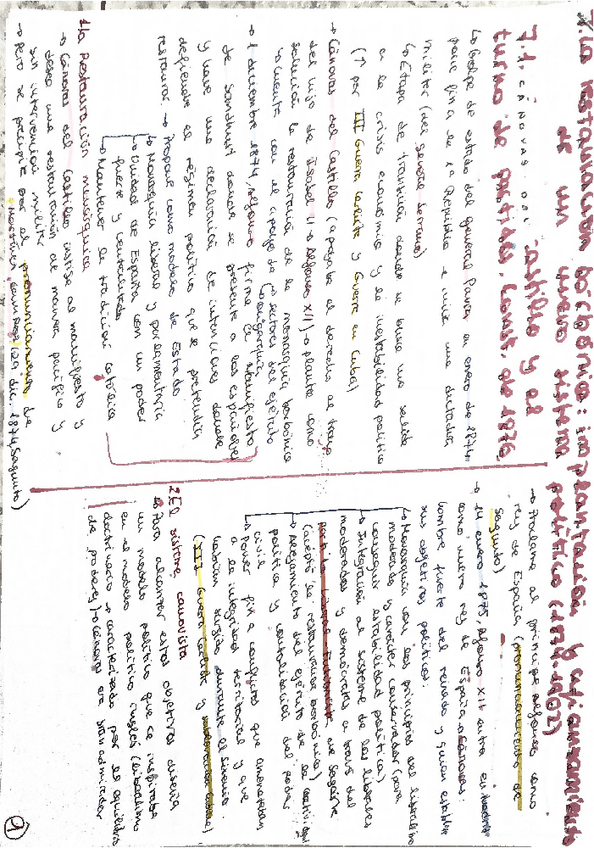 7. La restauración borbónica: implantación y afianzamiento
de un nuevo sistema político (1874-1902)
7.1. CÁNOVAS DEL Castillo y el
turno de partidos. Const. de 1876
↳ Golpe de estado del general Pavía en enero de 1874:
pone fin a la 1ª República e inicia una dictadura
militar (del general Serrano)
↳ Etapa de transición donde se busca una salida
a la crisis económica y la inestabilidad política
(↑ por III Guerra carlista y Guerra en Cuba)
→ Cánovas del Castillo (apoyaba el derecho al trono
del hijo de Isabel II → Alfonso XII) → plantea como
solución la restauración de la monarquía borbónica
↳ cuenta con el apoyo de sectores del ejército
→ oligarquía
→ 1 diciembre 1874, Alfonso firma el Manifiesto
de Sandhurst donde se presenta a los españoles
y hace una declaración de intenciones donde
defiende el régimen político que se pretendía
restaurar → Propone como modelo de Estado
↳ Monarquía liberal y parlamentaria
↳ Unidad de España con un poder
fuerte y centralizado
↳ Mantener la tradición católica
1. La Restauración monárquica
→ Cánovas del Castillo inspira el manifiesto y
desea una restauración de manera pacífica y
sin intervención militar
→ Pero se precipita por el pronunciamiento de
Martínez Campos (29 dic. 1874, Sagunto)
→ Proclama al príncipe Alfonso como
rey de España (pronunciamiento de
Sagunto)
→ 14 enero 1875, Alfonso XII entra en
como nuevo rey de España → Cánovas:
hombre fuerte del reinado y quien establece
sus objetivos políticos:
↳ Monarquía con los principios del liberalismo
moderado y carácter conservador (para
conseguir estabilidad política)
↳ Integración al sistema de los liberales
moderados y demócratas a través del
Partido Liberal Fusionista de Sagasta
(aceptó la restauración borbónica)
↳ Alejamiento del ejército de la
política y consolidación del poder
civil
↳ Poner fin a conflictos que amenazaban
a la integridad territorial y que
habían surgido durante el Sexenio
(III Guerra carlista y
2. El sistema canovista
↳ Para alcanzar estos objetivos diseña
un modelo político que se inspiraba
en el modelo político inglés (liberalismo
doctrinario → caracterizado por el equilibrio
de poderes) → Cánovas era gran admirador
1